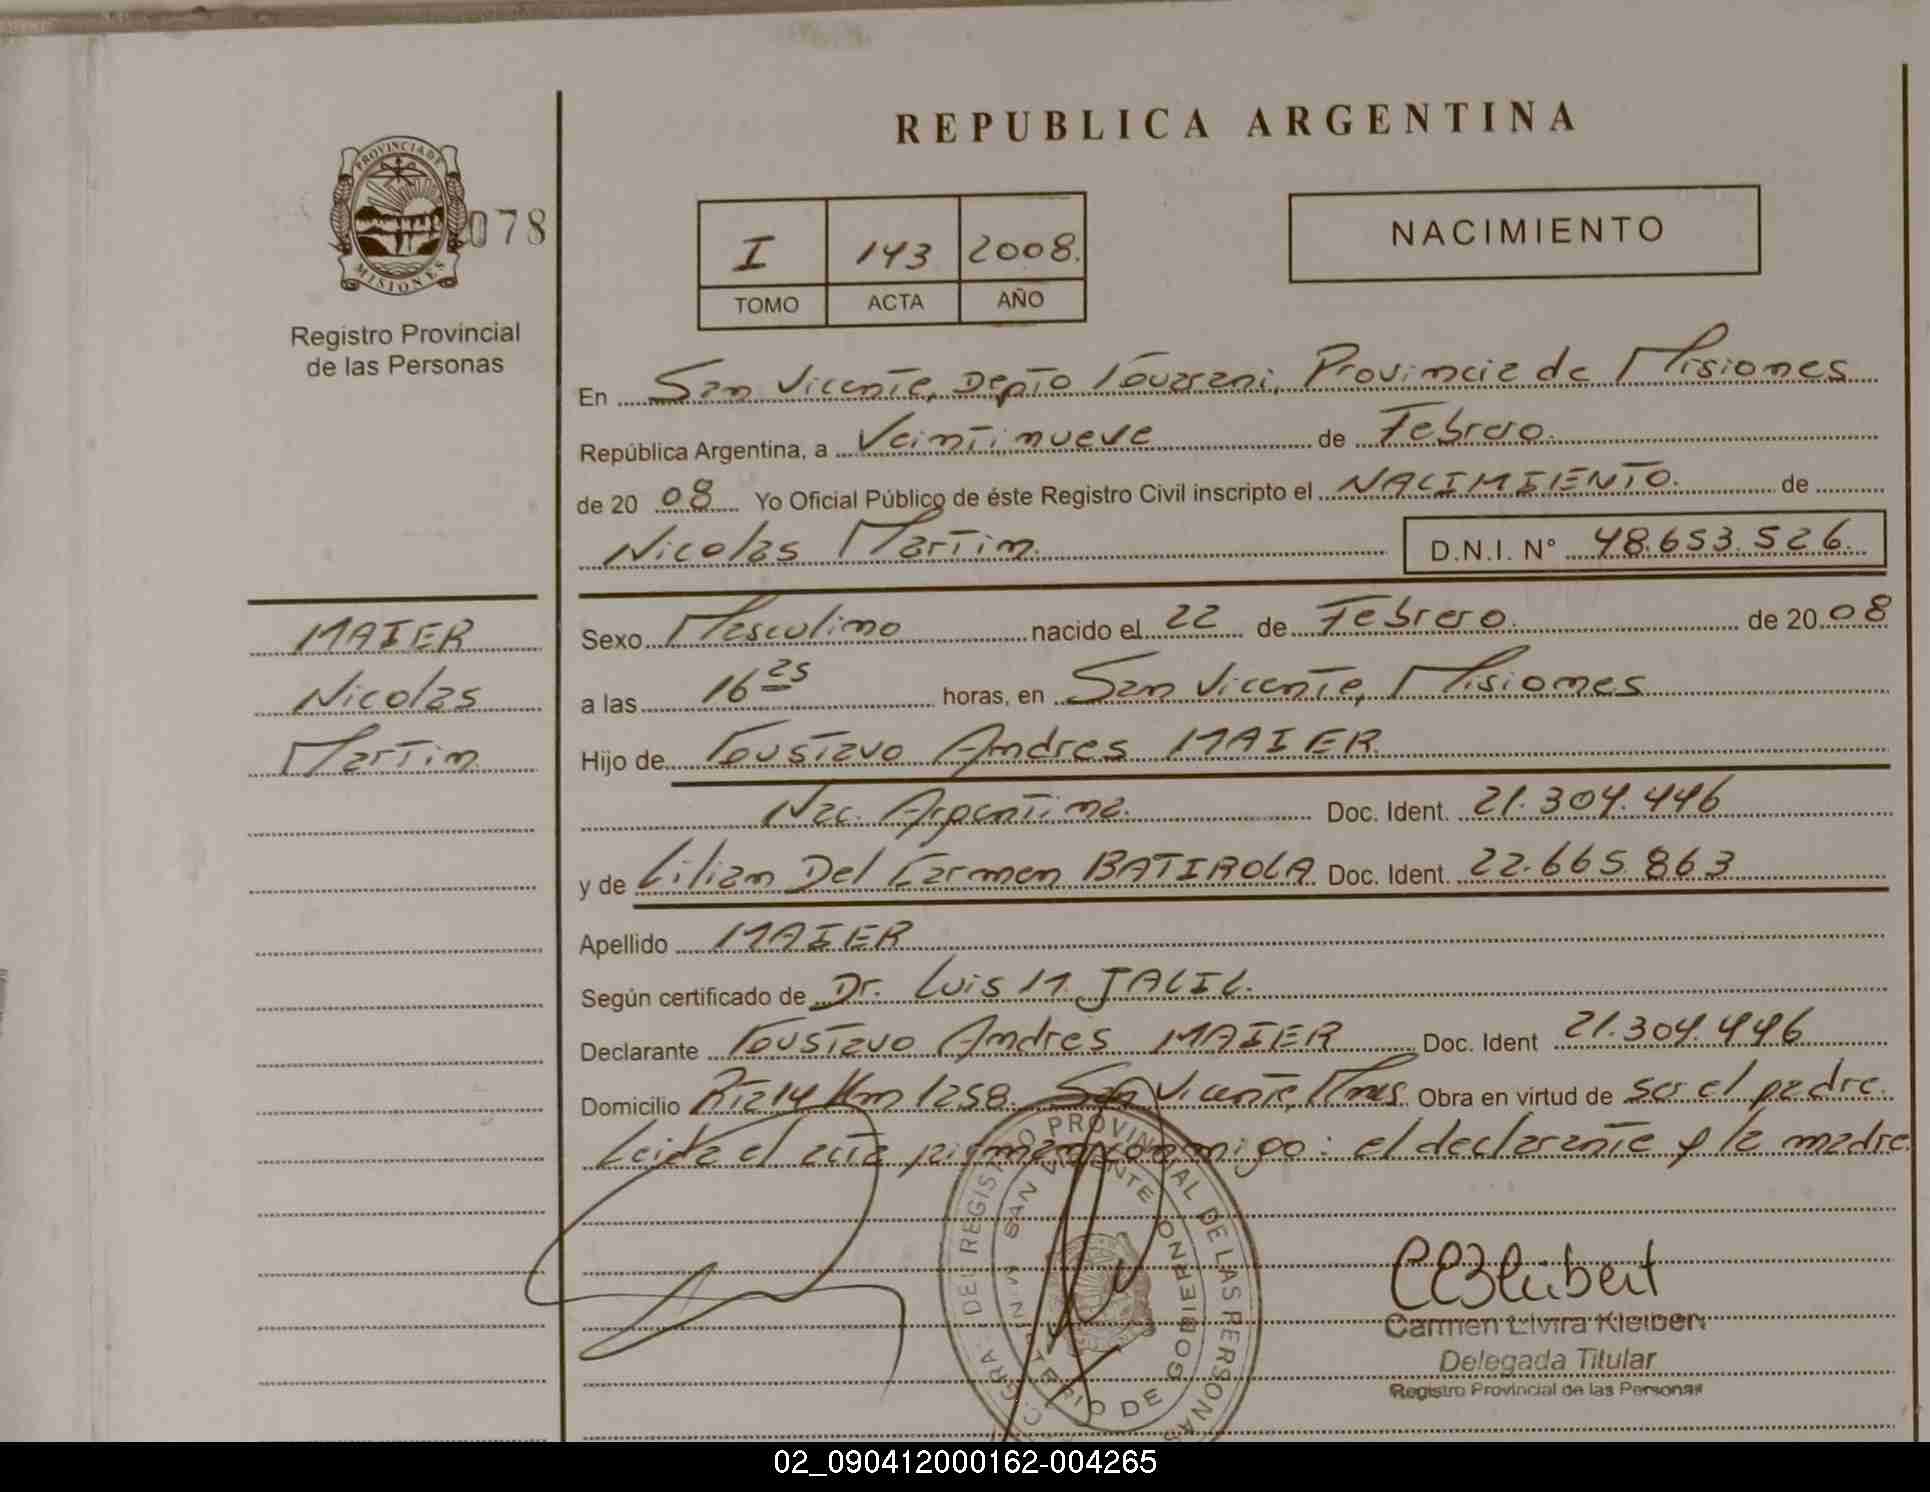 REPUBLICA ARGENTINA
PROVINCIA DE MISIONES
078
Registro Provincial
de las Personas
I 143 2008.
TOMO ACTA AÑO
NACIMIENTO
En San Vicente, Depto Guarani, Provincia de Misiones
República Argentina, a Veintinueve de Febrero.
de 20 08 Yo Oficial Público de éste Registro Civil inscripto el NACIMIENTO. de
Nicolas Martin. D.N.I. N° 48.653.526.
MAIER
Nicolas
Martin
Sexo Masculino nacido el 22 de Febrero. de 20 08
a las 16 25 horas, en San Vicente, Misiones
Hijo de Gustavo Andres MAIER
Nac. Argentina. Doc. Ident. 21.304.446
y de Lilian Del Carmen BATIROLA Doc. Ident. 22.665.863
Apellido MAIER
Según certificado de Dr. Luis M. JALIL.
Declarante Gustavo Andres MAIER Doc. Ident 21.304.446
Domicilio Rta 14 Km 1258. San Vicente, Mnes. Obra en virtud de ser el padre.
Leida el acta firman conmigo: el declarante y la madre
DEL REGISTRO PROVINCIAL DE LAS PERSONAS
SAN VICENTE
MINISTERIO DE GOBIERNO
Carmen Elvira Kleibert
Delegada Titular
Registro Provincial de las Personas
02_090412000162-004265